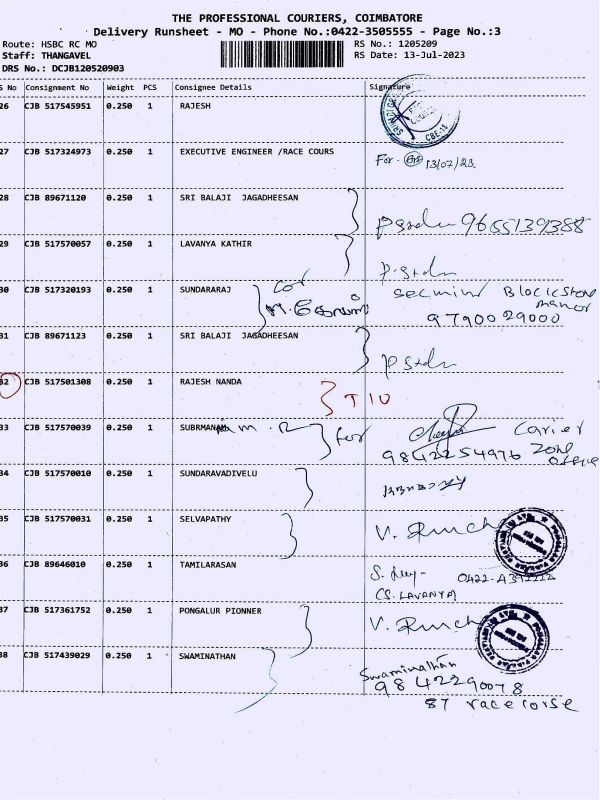 THE PROFESSIONAL COURIERS, COIMBATORE
Delivery Runsheet - MO - Phone No.:0422-3505555 - Page No.:3
Route: HSBC RC MO
RS No.: 1205209
Staff: THANGAVEL
RS Date: 13-Jul-2023
DRS No.: DCJB120520903
S No Consignment No Weight PCS Consignee Details Signature
26 CJB 517545951 0.250 1 RAJESH
CBE-18
27 CJB 517324973 0.250 1 EXECUTIVE ENGINEER /RACE COURS
For. 13/07/23
28 CJB 89671120 0.250 1 SRI BALAJI JAGADHEESAN
9655139388
29 CJB 517570057 0.250 1 LAVANYA KATHIR
30 CJB 517320193 0.250 1 SUNDARARAJ
manor
9790029000
31 CJB 89671123 0.250 1 SRI BALAJI JAGADHEESAN
32 CJB 517501308 0.250 1 RAJESH NANDA
33 CJB 517570039 0.250 1 SUBRMANAM
for
Carier
9842254976 Zone
34 CJB 517570010 0.250 1 SUNDARAVADIVELU
35 CJB 517570031 0.250 1 SELVAPATHY
36 CJB 89646010 0.250 1 TAMILARASAN
(S. LAVANYA)
37 CJB 517361752 0.250 1 PONGALUR PIONNER
38 CJB 517439029 0.250 1 SWAMINATHAN
Swaminathan
9842290078
87 racecorse